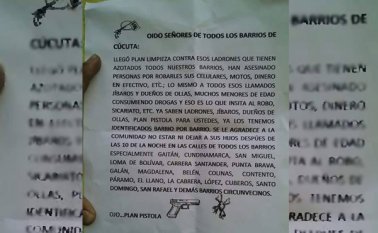 OIDO SEÑORES DE TODOS LOS BARRIOS DE
CÚCUTA:
LLEGÓ PLAN LIMPIEZA CONTRA ESOS LADRONES QUE TIENEN
AZOTADOS TODOS NUESTROS BARRIOS, HAN ASESINADO
PERSONAS POR ROBARLES SUS CELULARES, MOTOS, DINERO
EN EFECTIVO, ETC.; LO MISMO A TODOS ESOS LLAMADOS
JÍBAROS Y DUEÑOS DE OLLAS, MUCHOS MENORES DE EDAD
CONSUMIENDO DROGAS Y ESO ES LO QUE INVITA AL ROBO,
SICARIATO, ETC. YA SABEN LADRONES, JÍBAROS, DUEÑOS DE
OLLAS, PISTOLA PARA USTEDES, YA LOS TENEMOS
IDENTIFICADOS BARRIO POR BARRIO. SE LE AGRADECE A LA
COMUNIDAD NO ESTAR NI DEJAR A SUS HIJOS DESPÚES DE
LAS 10 DE LA NOCHE EN LAS CALLES DE TODOS LOS BARRIOS
ESPECIALMENTE GAITÁN, CUNDINAMARCA, SAN MIGUEL,
LOMA DE BOLÍVAR, CARRERA CANTARRANA, PUNTA BRAVA,
GALÁN, MAGDALENA, BELÉN, COLINAS, CONTENTO,
PÁRAMO, EL LLANO, LA CABRERA, LÓPEZ, CUBEROS, SANTO
DOMINGO, SAN RAFAEL Y DEMÁS BARRIOS CIRCUNVECINOS.
OJO...PLAN PISTOLA